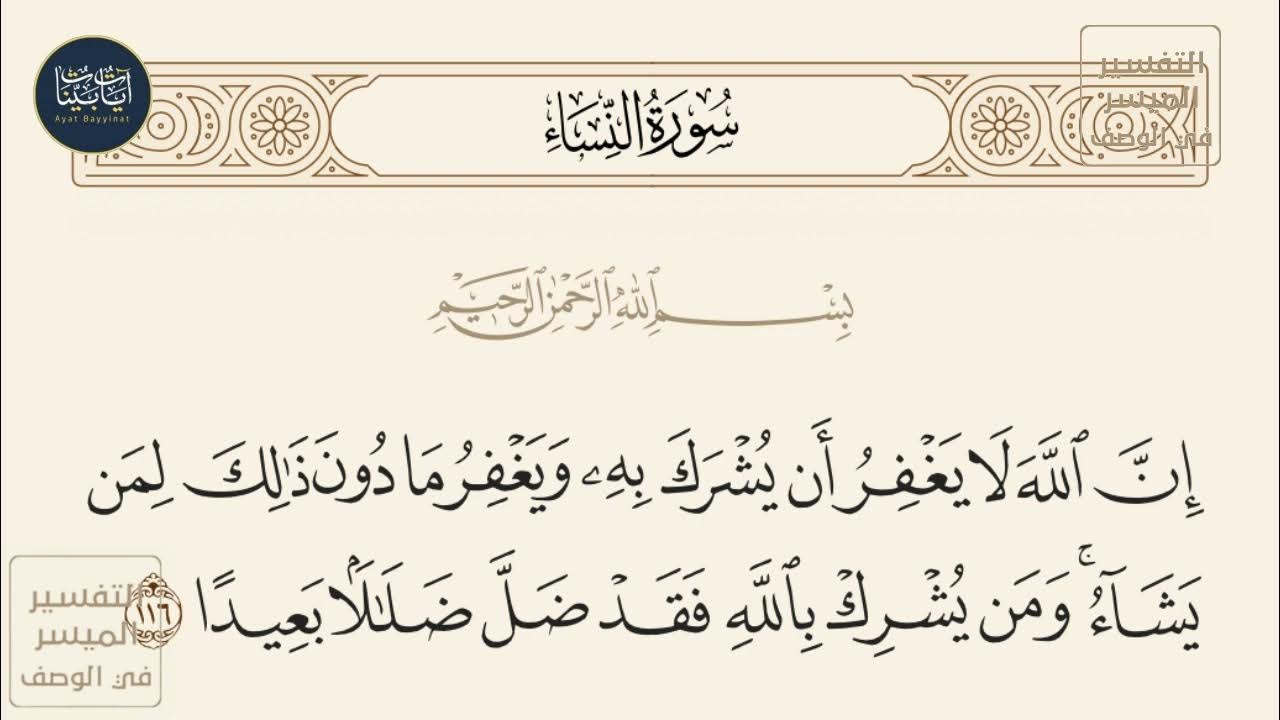 آيات بينات
Ayat Bayyinat
التفسير
الميسر
في الوصف
سُورَةُ النِّسَاءِ
بِسْمِ ٱللَّهِ ٱلرَّحْمَٰنِ ٱلرَّحِيمِ
إِنَّ ٱللَّهَ لَا يَغْفِرُ أَن يُشْرَكَ بِهِۦ وَيَغْفِرُ مَا دُونَ ذَٰلِكَ لِمَن
يَشَآءُ ۚ وَمَن يُشْرِكْ بِٱللَّهِ فَقَدْ ضَلَّ ضَلَٰلَۢا بَعِيدًا ١١٦
التفسير
الميسر
في الوصف